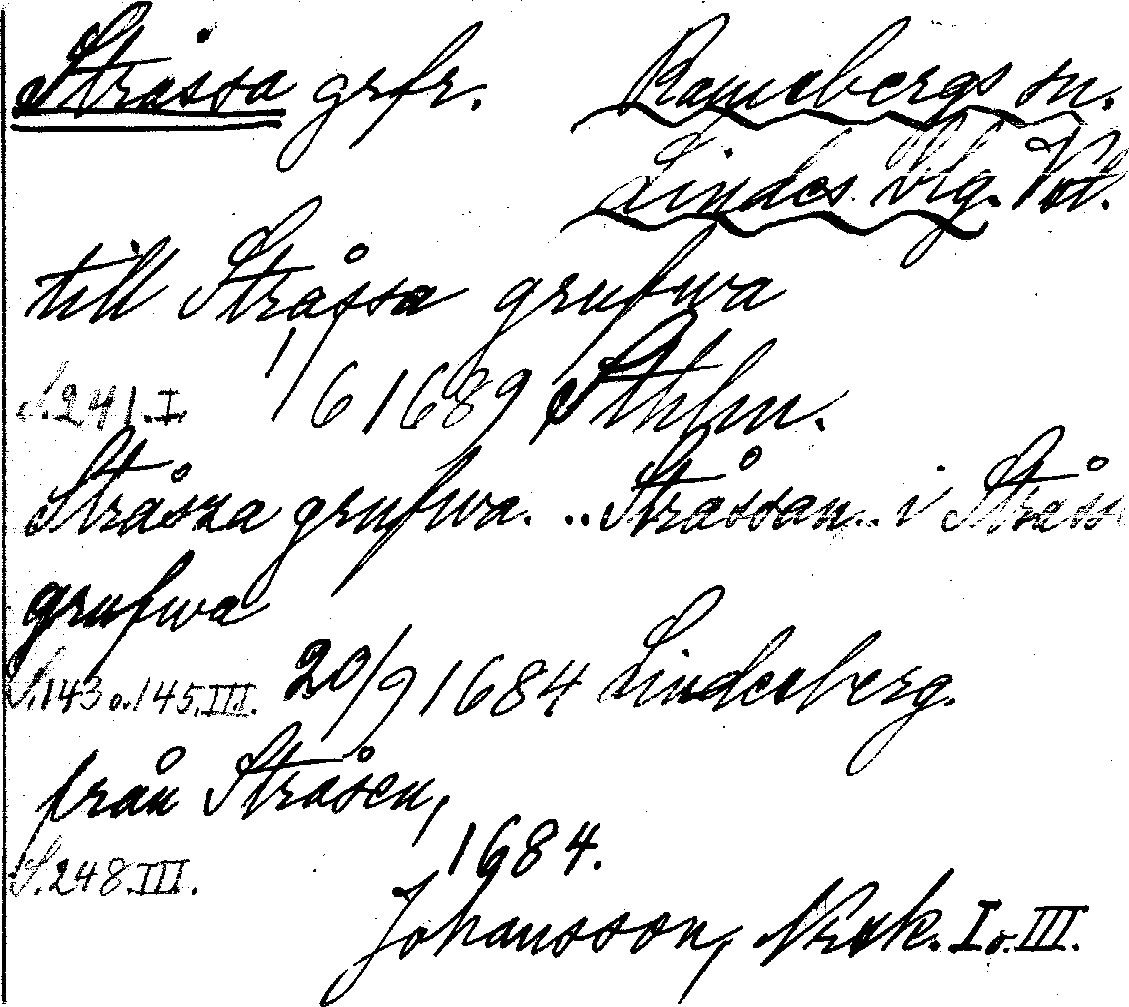 Stråssa grfr. Ramsbergs sn.
Lindes blg. Vstl.
till Stråssa grufwa
S. 241. I. 1/6 1689 Sthlm.
Stråsza grufwa. .. Stråssan .. i Stråss
grufwa
S. 143 o. 145. III. 20/9 1684 Lindesberg.
från Stråsen,
S. 248. III. 1684.
Johansson, I o. III.